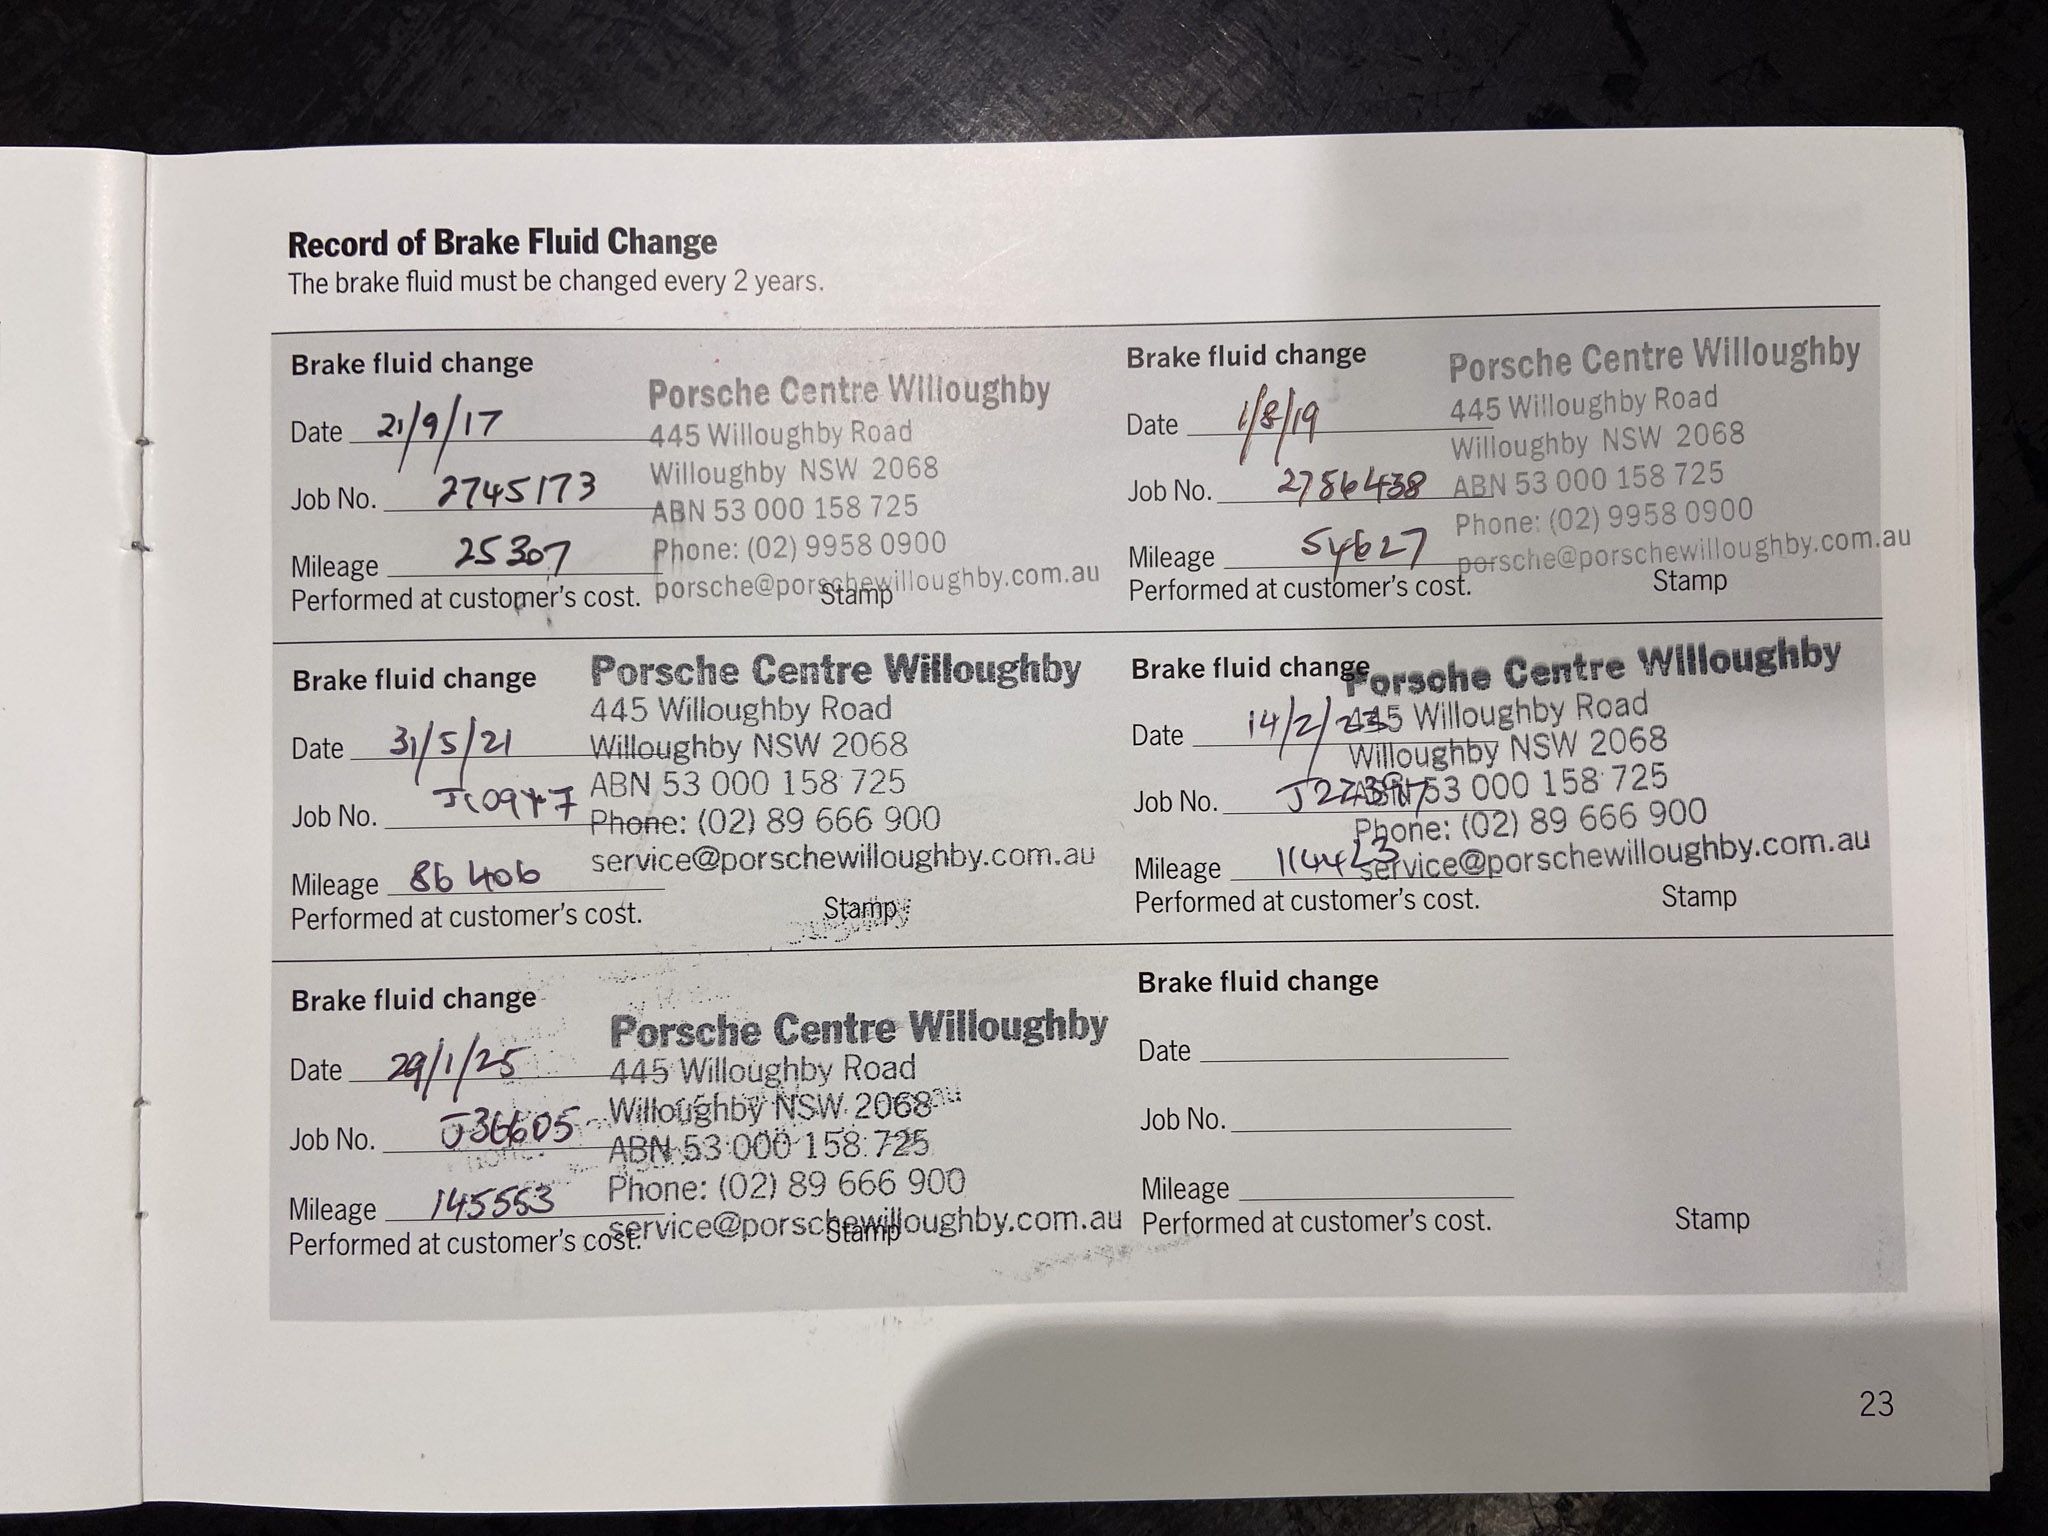 Record of Brake Fluid Change
The brake fluid must be changed every 2 years.
Brake fluid change
Date 21/9/17
Job No. 2745173
Mileage 25307
Performed at customer's cost.
Porsche Centre Willoughby
445 Willoughby Road
Willoughby NSW 2068
ABN 53 000 158 725
Phone: (02) 9958 0900
porsche@porschewilloughby.com.au
Stamp
Brake fluid change
Date 1/8/19
Job No. 2756438
Mileage 54627
Performed at customer's cost.
Porsche Centre Willoughby
445 Willoughby Road
Willoughby NSW 2068
ABN 53 000 158 725
Phone: (02) 9958 0900
porsche@porschewilloughby.com.au
Stamp
Brake fluid change
Date 31/5/21
Job No.
Mileage 86406
Performed at customer's cost.
Porsche Centre Willoughby
445 Willoughby Road
Willoughby NSW 2068
ABN 53 000 158 725
Phone: (02) 89 666 900
service@porschewilloughby.com.au
Stamp
Brake fluid change
Date 14/2/23
Job No.
Mileage 114423
Performed at customer's cost.
Porsche Centre Willoughby
445 Willoughby Road
Willoughby NSW 2068
ABN 53 000 158 725
Phone: (02) 89 666 900
service@porschewilloughby.com.au
Stamp
Brake fluid change
Date 29/1/25
Job No. J36605
Mileage 145553
Performed at customer's cost.
Porsche Centre Willoughby
445 Willoughby Road
Willoughby NSW 2068
ABN 53 000 158 725
Phone: (02) 89 666 900
service@porschewilloughby.com.au
Stamp
Brake fluid change
Date
Job No.
Mileage
Performed at customer's cost.
Stamp
23